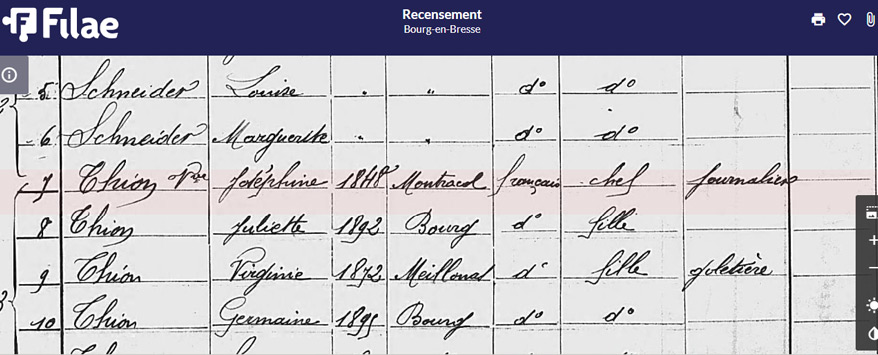 Filae
Recensement
Bourg-en-Bresse
5 Schneider Louise " " d° d°
6 Schneider Marguerite " " d° d°
7 Thion Vve Joséphine 1848 Montracol français chef journalier
8 Thion Juliette 1892 Bourg d° fille
9 Thion Virginie 1872 Meillonas d° fille giletière
10 Thion Germaine 1895 Bourg d° d°